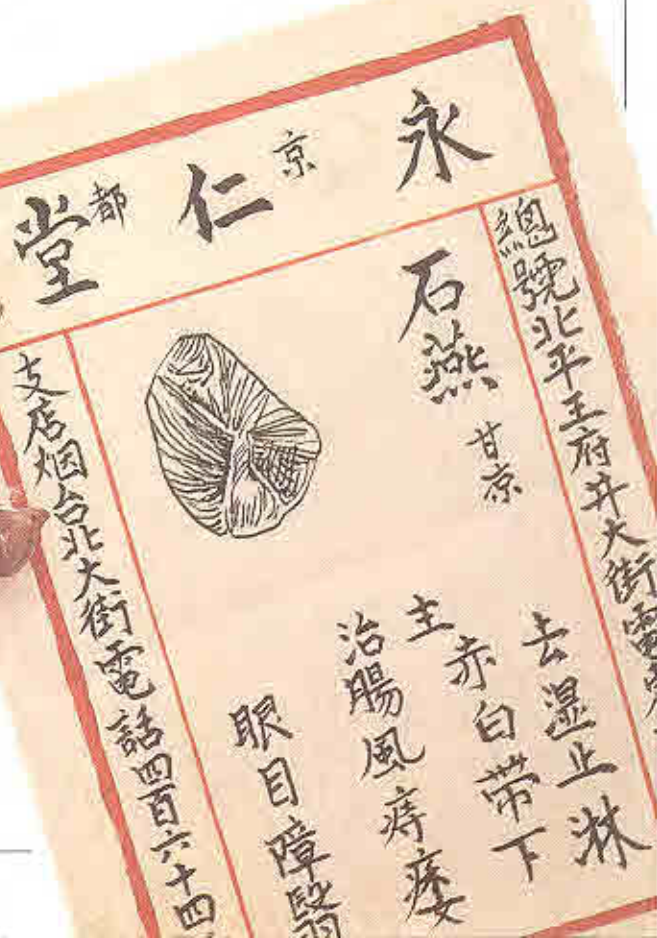 永仁堂
京都
總號北平王府井大街電
石燕
甘凉
去湿止淋
主赤白带下
治腸風痔瘻
眼目障翳
支店烟台北大街電話四百六十四